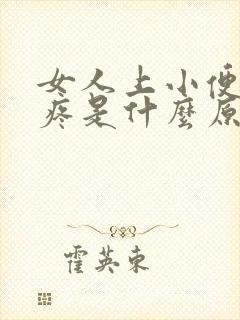 女人上小便
疼是什麼原
霍英東